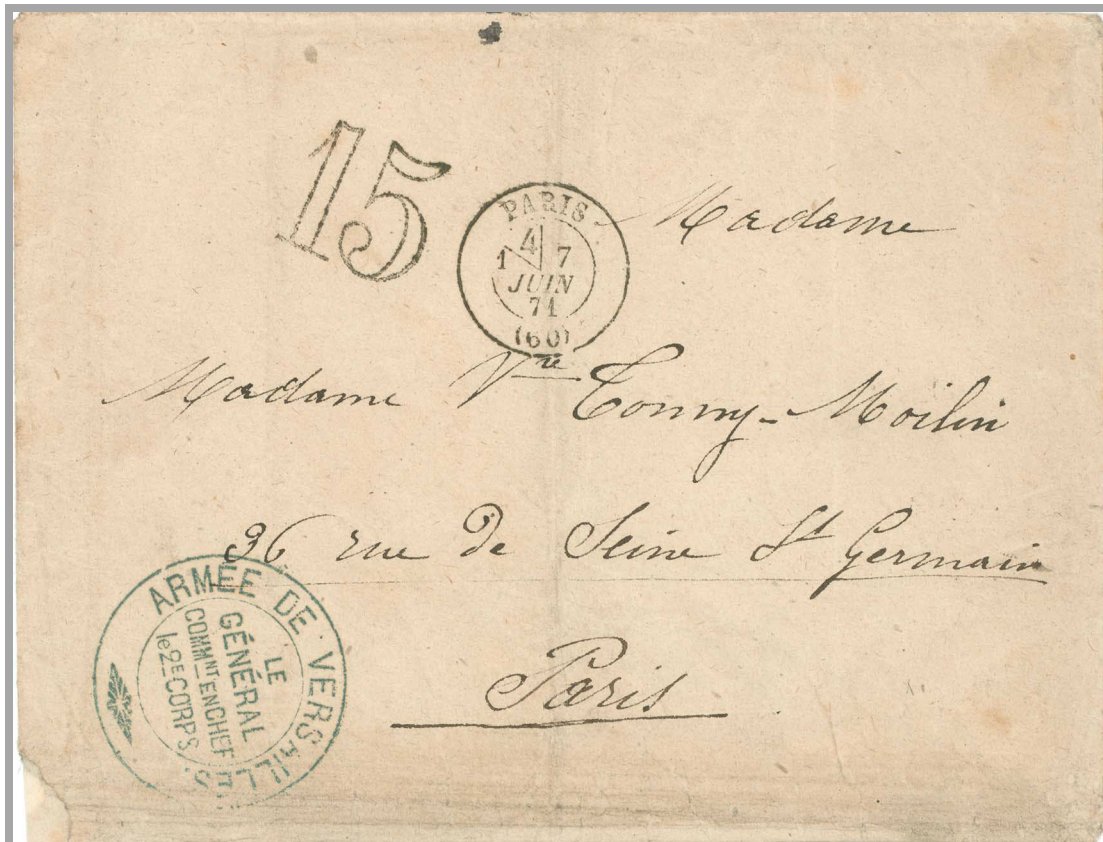 15
PARIS
4
1 7
JUIN
71
(60)
Madame
Madame Vve Tonny-Moilin
36 rue de Seine St Germain
Paris
ARMÉE DE VERSAILLES
LE
GÉNÉRAL
COMMNT EN CHEF
le 2E CORPS